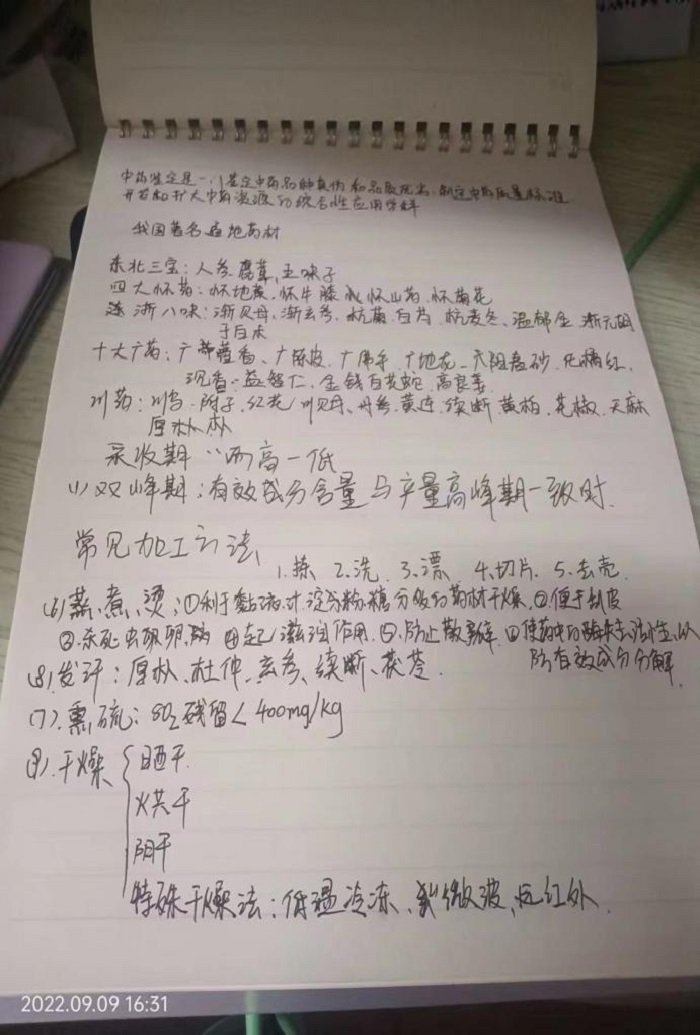 中药鉴定是一门鉴定中药品种真伪和品质优劣，制定中药质量标准
开发和扩大中药资源的综合性应用学科
我国著名道地药材
东北三宝：人参、鹿茸、五味子
四大怀药：怀地黄、怀牛膝、怀山药、怀菊花
浙八味：浙贝母、浙玄参、杭菊、白芍、杭麦冬、温郁金、浙元胡
于白术
十大广药：广藿香、广陈皮、广佛手、广地龙、阳春砂、化橘红、
沉香、益智仁、金钱白花蛇、高良姜
川药：川乌、附子、红花、川贝母、丹参、黄连、续断、黄柏、花椒、天麻
厚朴
采收期 "两高一低
(1)双峰期：有效成分含量与产量高峰期一致时.
常见加工方法
1.拣 2.洗 3.漂 4.切片. 5.去壳
(6)蒸、煮、烫：①利于黏液汁淀粉糖分级的药材干燥，②便于刮皮
③杀死虫卵 ④起滋润作用.⑤防止散 使药中的酶失去活性，以
防有效成分分解
(8)发汗：厚朴、杜仲、玄参、续断、茯苓.
(7).熏硫：SO₂残留<400mg/kg
(9).干燥 晒干
烘干
阴干
特殊干燥法：低温冷冻、微波、远红外.
2022.09.09 16:31